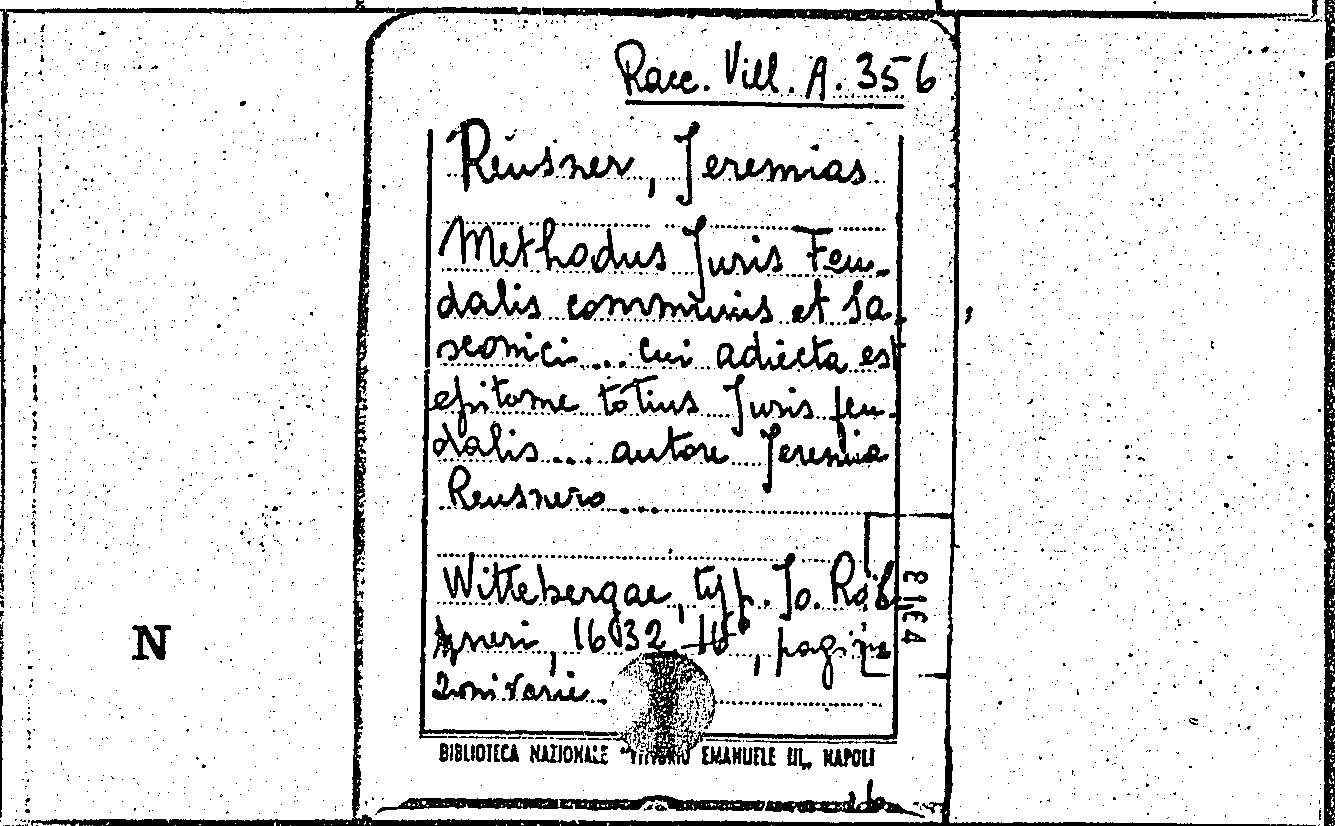 Racc. Vill. A. 356
Reusner, Jeremias
Methodus Juris Feu-
dalis communis et Sa-
xonici... cui adiecta est
epitome totius Juris feu-
dalis... autore Jeremia
Reusnero...
Wittebergae, typ. Jo.
1632 16°, pagina
zioni varie
N
BIBLIOTECA NAZIONALE "VITTORIO EMANUELE III„ NAPOLI